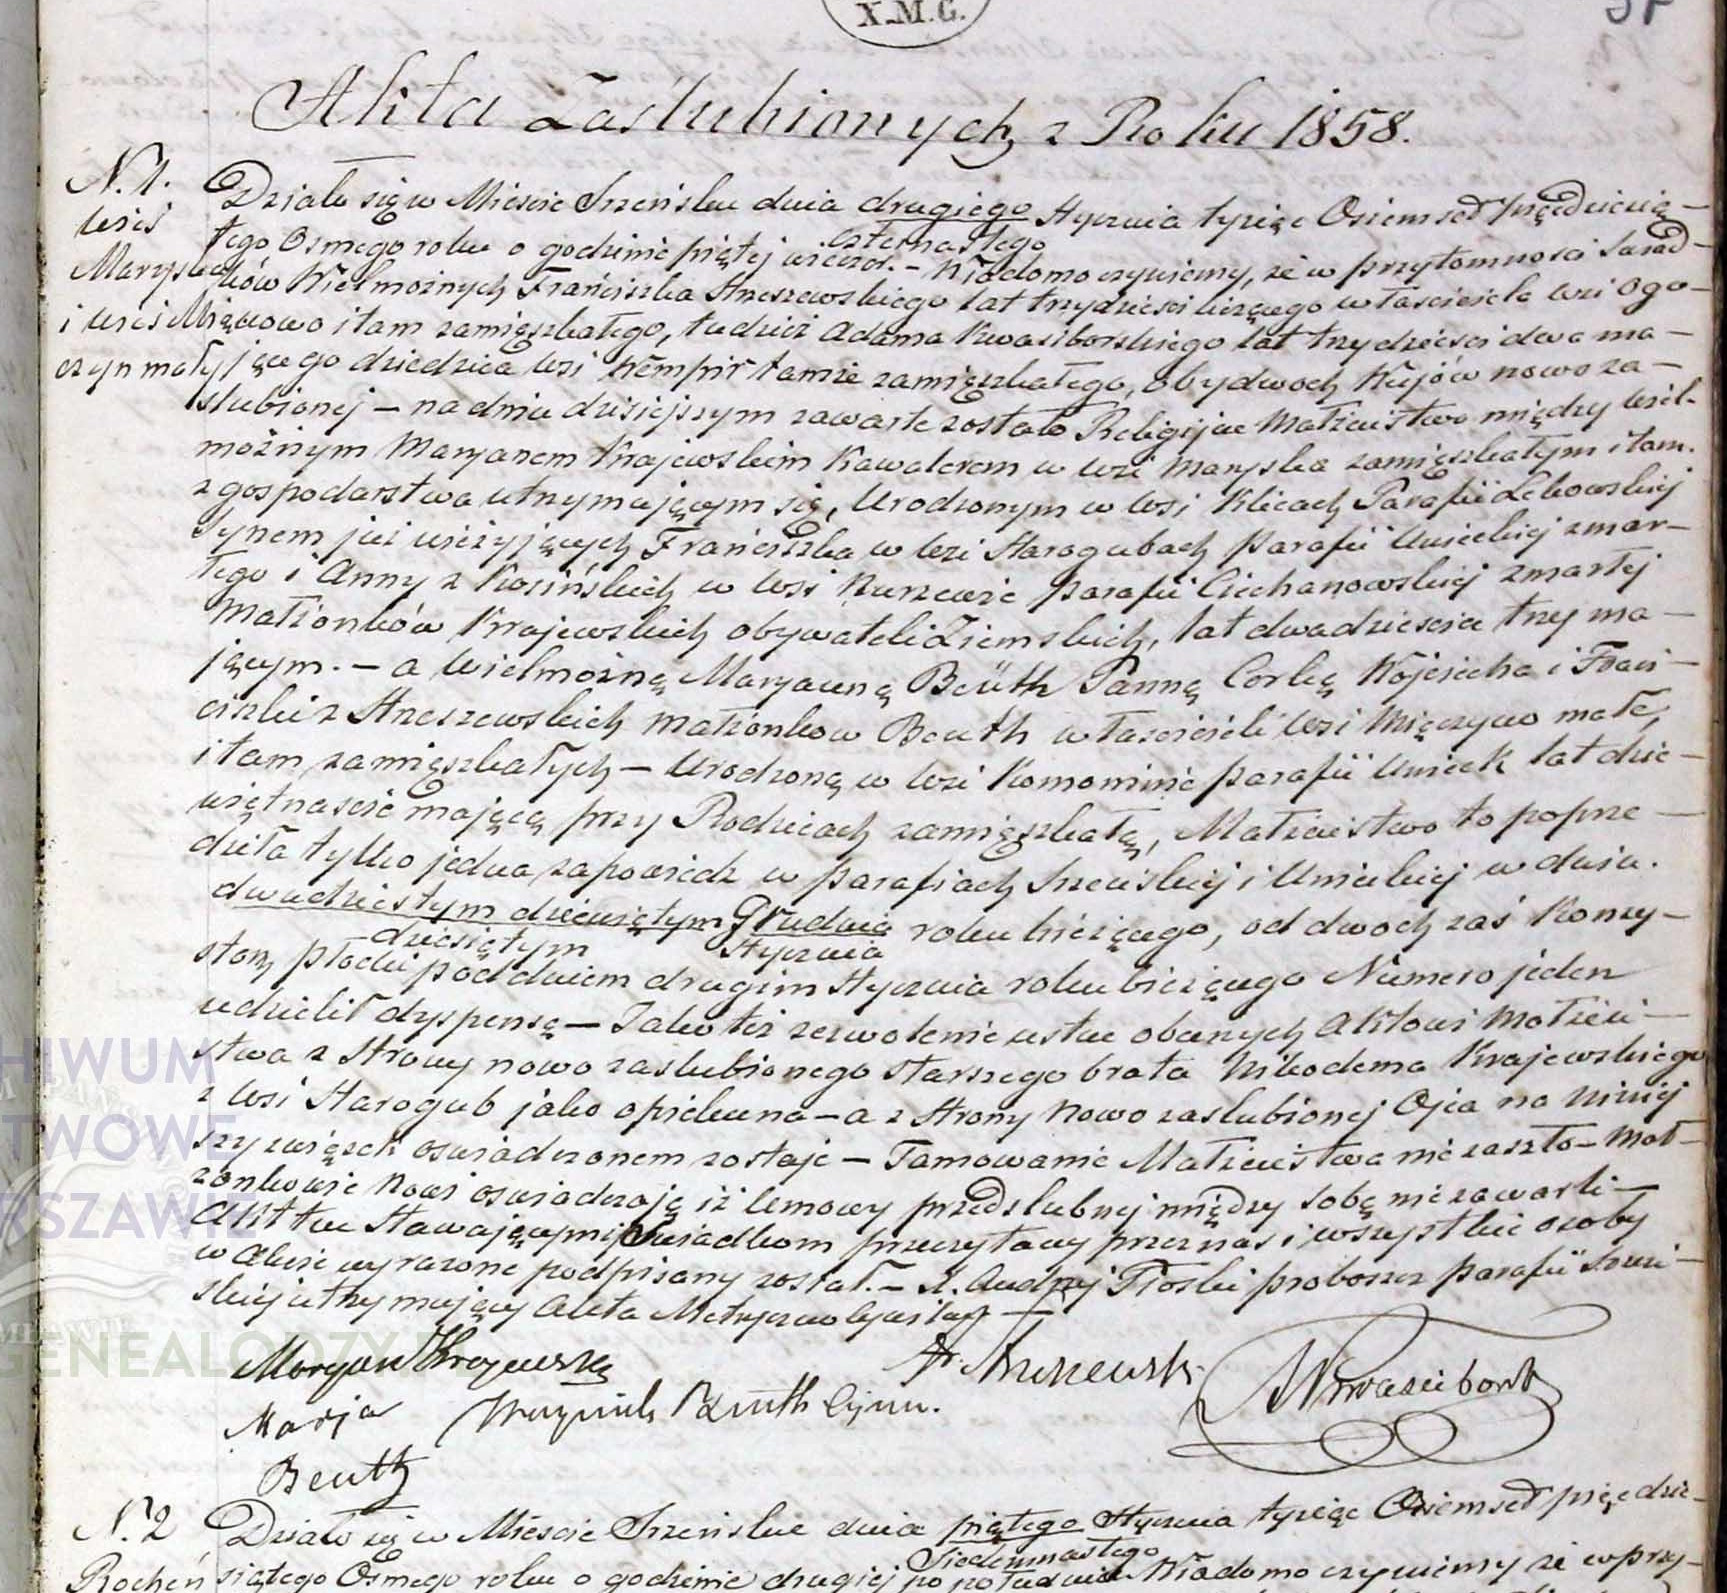 X.M.G.
Akta Zaślubionych z Roku 1858.
N. 1.
wieś
Maryska
i wieś Mię
czyn mały
Działo się w Mieście Szeńsku dnia drugiego Stycznia tysiąc Osiemset pięćdziesią-
czternastego
tego Osmego roku o godzinie piątej wieczor. – Wiadomo czyniemy, że w przytomności Świad-
ków Wielmożnych Franciszka Strzeszewskiego lat trzydzieści liczącego właściciela wsi Ogo-
nowo i tam zamięszkałego, tudzież Adama Kwasiborskiego lat trzydzieści dwa ma-
jącego dziedzica wsi Kempir tamże zamięszkałego, obydwoch Wujów nowo za-
slubionej – na dniu dzisiejszym zawarte zostało Religijne Małżeństwo między Wiel-
możnym Maryanem Krajewskim Kawalerem w wsi Maryska zamięszkałym i tam.
z gospodarstwa utrzymującym się, Urodzonym w wsi Klicach Parafii Lekowskiej
Synem już nieżyjących Franciszka w wsi Starogubach parafii Unieckiej zmar-
łego i Anny z Kosińskich w wsi parafii Ciechanowskiej zmarłej
Małżonków Krajewskich obywateli Ziemskich, lat dwadzieścia trzy ma-
jącym. – a Wielmożną Maryanną Beüth Panną Corką Wojciecha i Fran-
ciszki z Strzeszewskich małżonkow Beuth właścicieli wsi Mięczyno małe,
i tam zamięszkałych – Urodzoną w wsi Komominie parafii Unieck lat dzie-
więtnaście mającą przy Rodzicach zamięszkałą, Małżeństwo to poprze-
dziła tylko jedna zapowiedz w parafiach Szeńskiej i Unieckiej w dniu.
dwudziestym dziewiątym Grudnia roku bieżącego, od dwoch zaś Konsy-
dziesiątym Stycznia
storz płocki pod dniem drugim Stycznia roku bieżącego Numero jeden
udzielił dyspensę – Jako też zezwolenie ustne obecnych Aktowi Małżeń-
stwa z Strony nowo zaslubionego starszego brata Nikodema Krajewskiego
z wsi Starogub jako opiekuna – a z Strony Nowo zaslubionej Ojca na niniej
szy związek oswiadczonem zostaje – Tamowanie Małżeństwa nie zaszło – Mał-
żonkowie Nowi oswiadczają iż Umowy przedslubnej między sobą nie zawarli –
Akt ten Stawającymi i Swiadkom przeczytany przez nas i wszystkie osoby
w Akcie wyrażone podpisany został. – X. Andrzej Tłoski proboszcz parafii Szeń-
skiej utrzymujący Akta Metryczno Cywilne –
Maryan Krajewski
Fr. Strzeszewski
AKwasiborsk
Marja
Beuth
Woyciech Beuth Ojciec.
N. 2
Rochen
Działo się w Mieście Szeńsku dnia piątego Stycznia tysiąc Osiemset pięćdzie-
Siedemnastego
siątego Osmego roku o godzinie drugiej po południu Wiadomo czyniemy że w przy-
HIWUM
TWOWE
RSZAWIE
GENEALODZY.